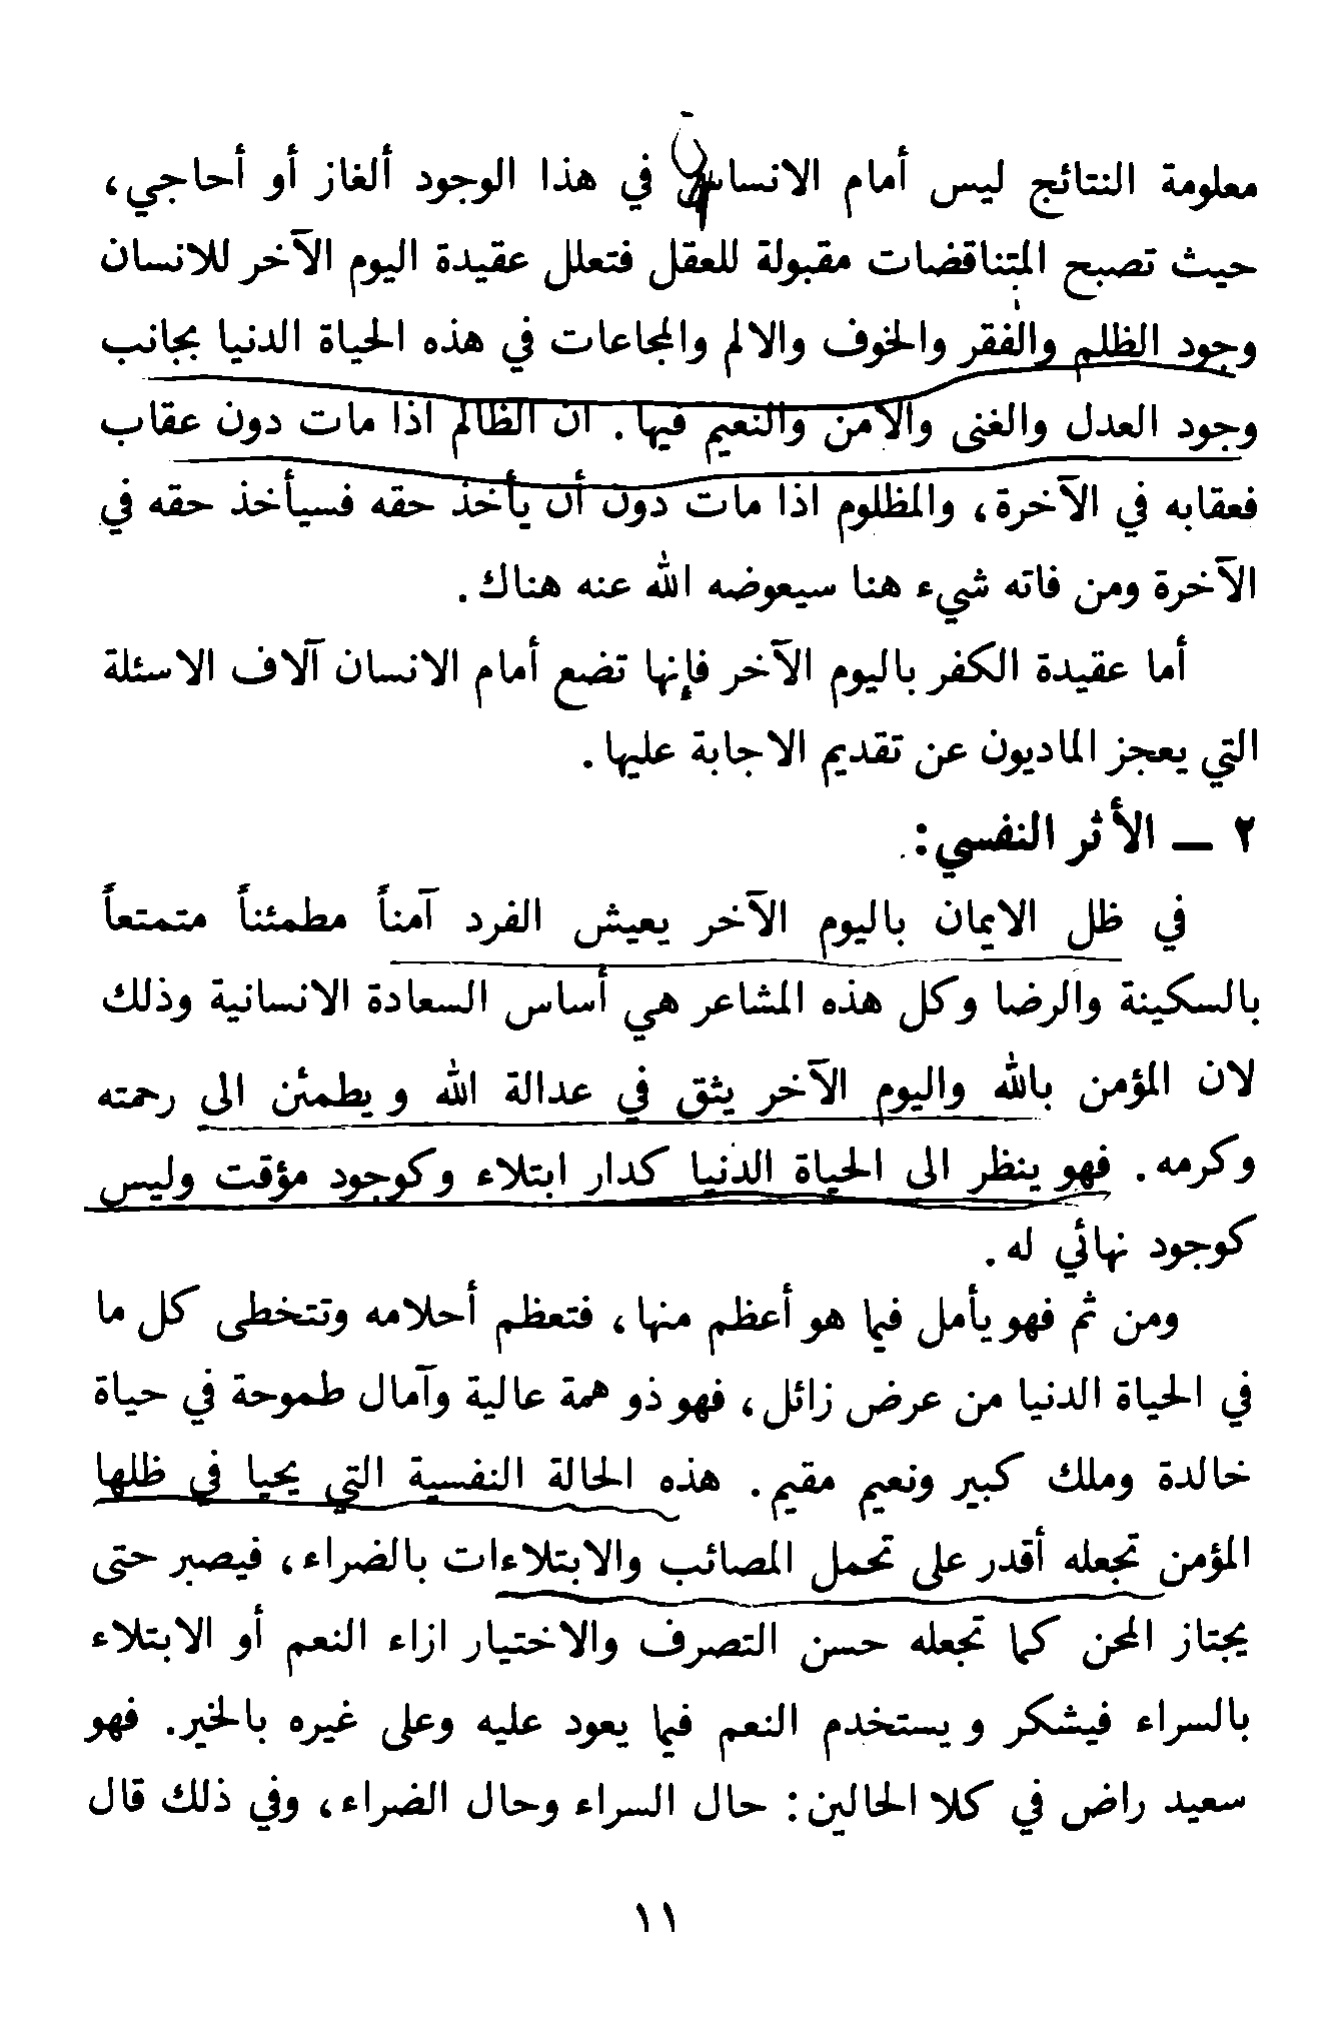 معلومة النتائج ليس أمام الانسان في هذا الوجود ألغاز أو أحاجي،
حيث تصبح المتناقضات مقبولة للعقل فتعلل عقيدة اليوم الآخر للانسان
وجود الظلم والفقر والخوف والالم والمجاعات في هذه الحياة الدنيا بجانب
وجود العدل والغنى والامن والنعيم فيها. ان الظالم اذا مات دون عقاب
فعقابه في الآخرة، والمظلوم اذا مات دون أن يأخذ حقه فسيأخذ حقه في
الآخرة ومن فاته شيء هنا سيعوضه الله عنه هناك.
أما عقيدة الكفر باليوم الآخر فإنها تضع أمام الانسان آلاف الاسئلة
التي يعجز الماديون عن تقديم الاجابة عليها.
٢ ـ الأثر النفسي:
في ظل الايمان باليوم الآخر يعيش الفرد آمناً مطمئناً متمتعاً
بالسكينة والرضا وكل هذه المشاعر هي أساس السعادة الانسانية وذلك
لان المؤمن بالله واليوم الآخر يثق في عدالة الله ويطمئن الى رحمته
وكرمه. فهو ينظر الى الحياة الدنيا كدار ابتلاء وكوجود مؤقت وليس
كوجود نهائي له.
ومن ثم فهو يأمل فيما هو أعظم منها، فتعظم أحلامه وتتخطى كل ما
في الحياة الدنيا من عرض زائل، فهو ذو همة عالية وآمال طموحة في حياة
خالدة وملك كبير ونعيم مقيم. هذه الحالة النفسية التي يحيا في ظلها
المؤمن تجعله أقدر على تحمل المصائب والابتلاءات بالضراء، فيصبر حتى
يجتاز المحن كما تجعله حسن التصرف والاختيار ازاء النعم أو الابتلاء
بالسراء فيشكر ويستخدم النعم فيما يعود عليه وعلى غيره بالخير. فهو
سعيد راض في كلا الحالين: حال السراء وحال الضراء، وفي ذلك قال
١١